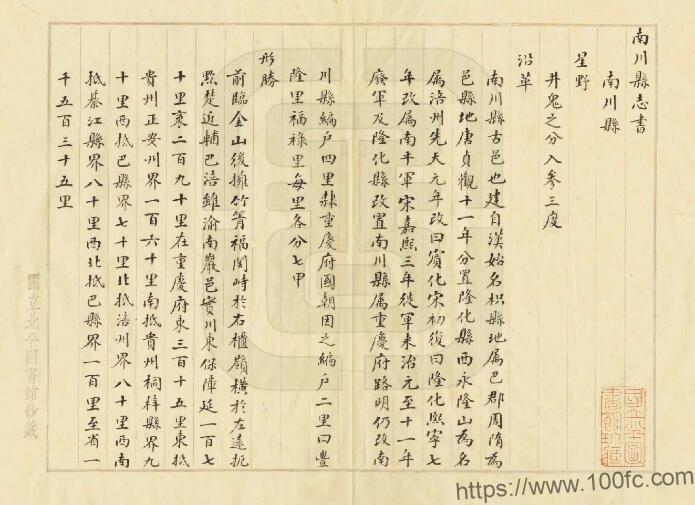 南川縣志書
南川縣
星野
井鬼之分入參三度
沿革
南川縣古邑也建自漢始名枳縣地屬巴郡周隋為
邑縣地唐貞觀十一年分置隆化縣西永隆山為名
屬涪州先天元年改曰賓化宋初復曰隆化熙寧七
年改屬南平軍宋嘉熙三年徙軍來治元至十一年
廢軍及隆化縣改置南川縣屬重慶府路明仍改南
川縣編戶四里隸重慶府國朝因之編戶二里曰豐
隆里福祿里每里各分七甲
形勝
前臨金山後擁竹箐福閣峙於右櫃嶺橫於左遠扼
黔楚近輔巴涪雖渝南巖邑實川東保障延一百七
十里袤二百九十里在重慶府東三百十五里東抵
貴州正安州界一百六十里南抵貴州桐梓縣界九
十里西抵巴縣界七十里北抵涪州界八十里西南
抵綦江縣界八十里西北抵巴縣界一百里至省一
千五百三十五里
國立北平圖書館鈔藏
https://www.100fc.com